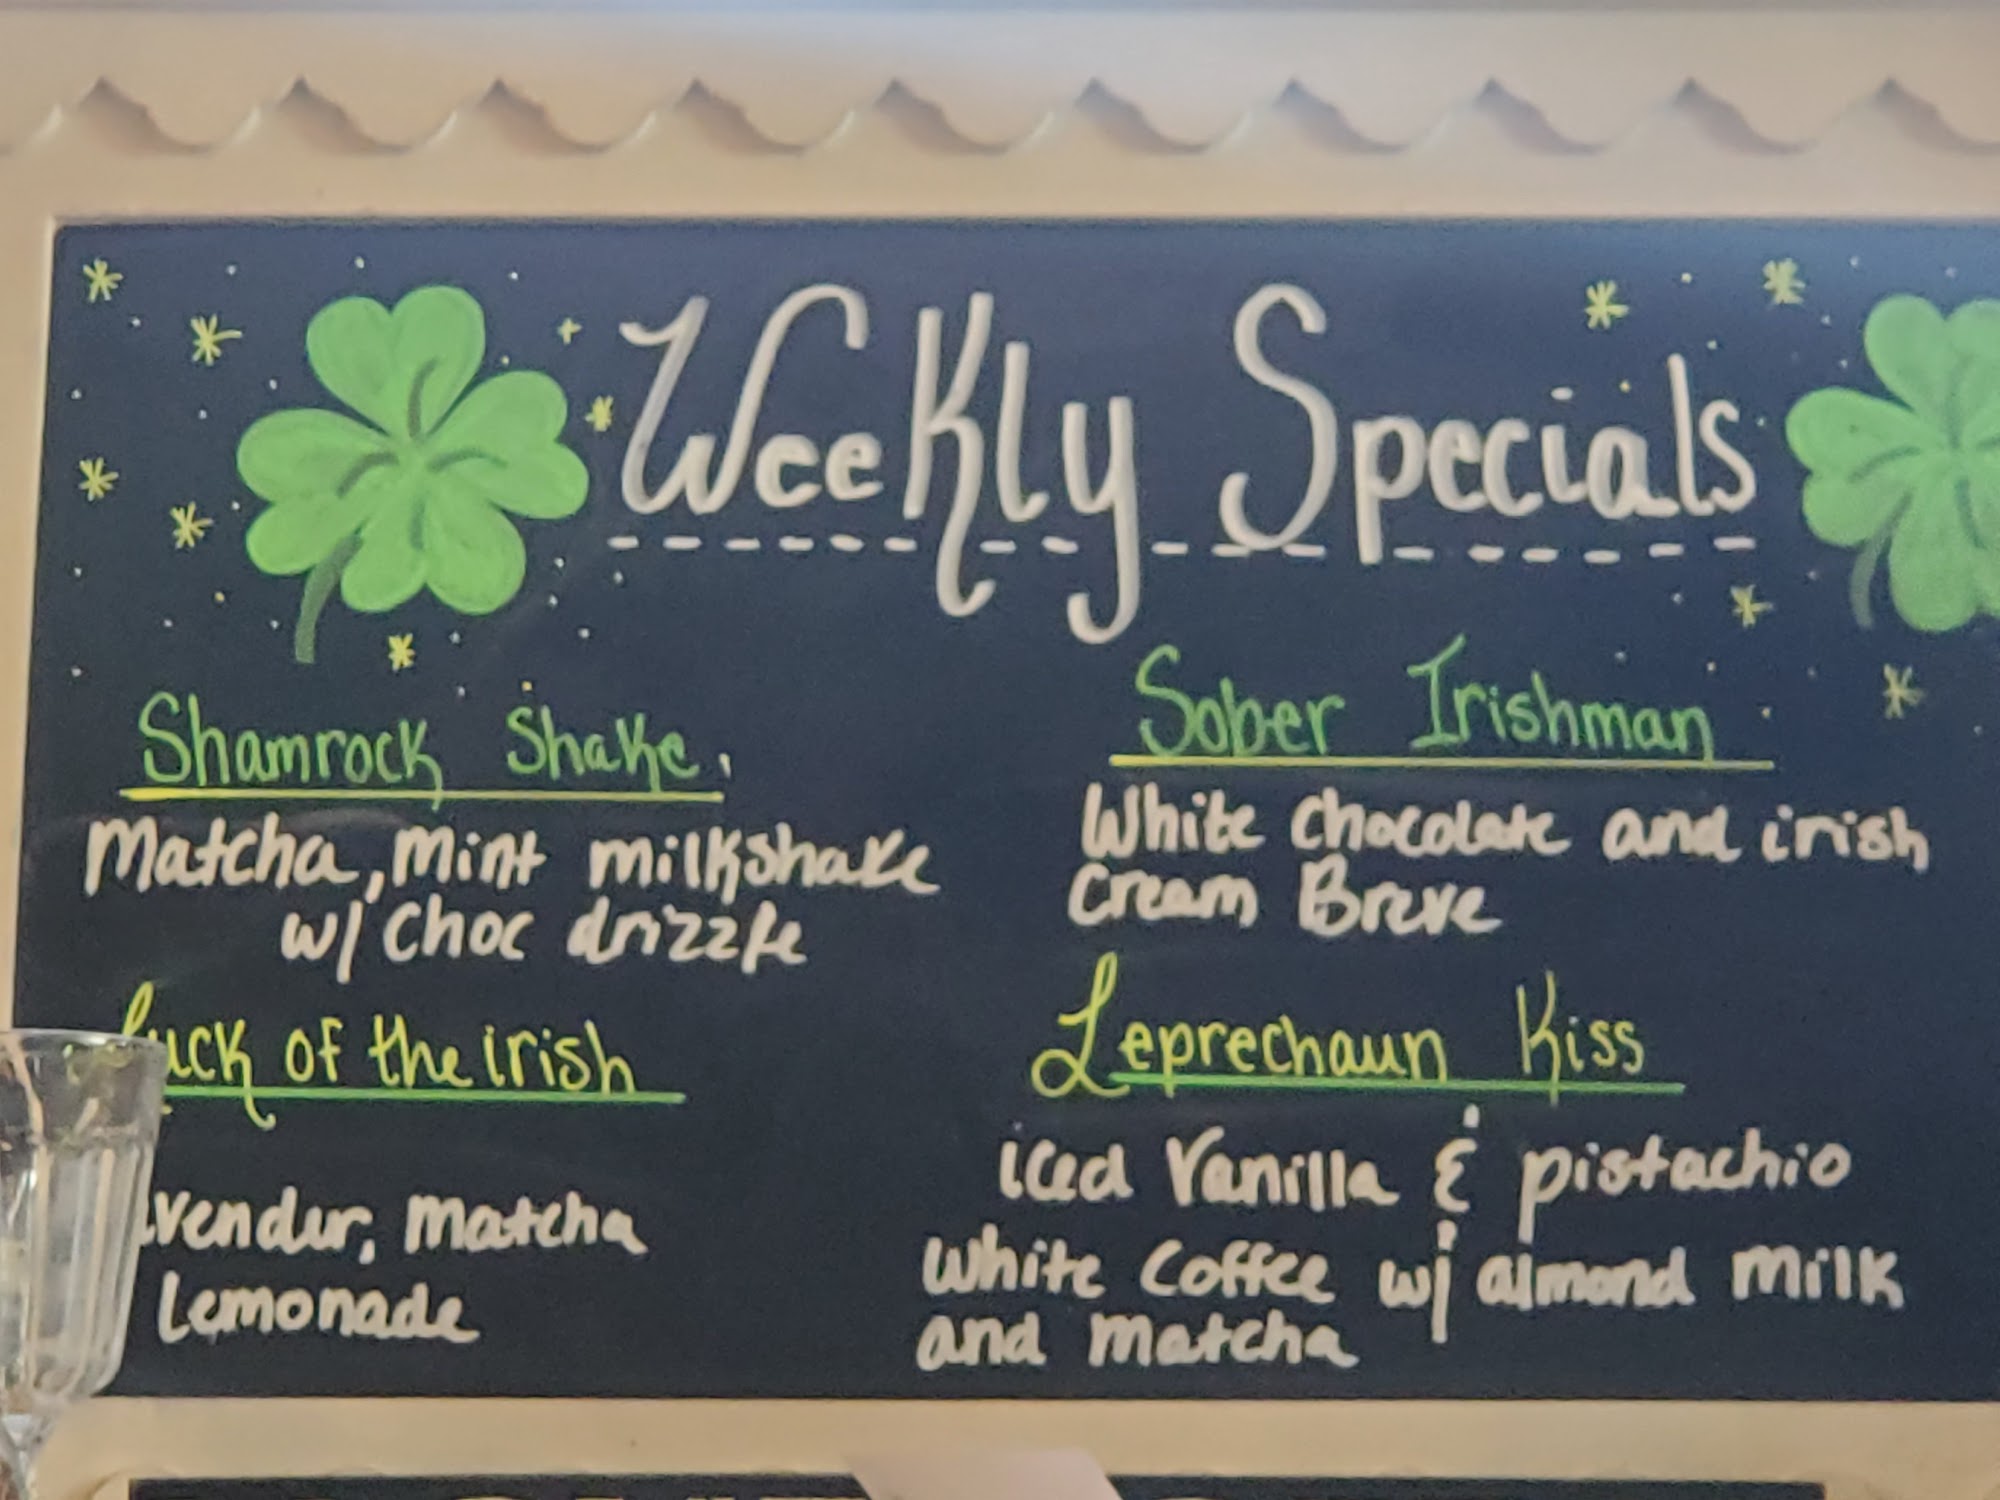 Weekly Specials
Shamrock Shake
Matcha, mint milkshake
w/ choc drizzle
Luck of the irish
vender, matcha
Lemonade
Sober Irishman
White chocolate and irish
cream Breve
Leprechaun Kiss
iced vanilla & pistachio
white coffee w/ almond milk
and matcha